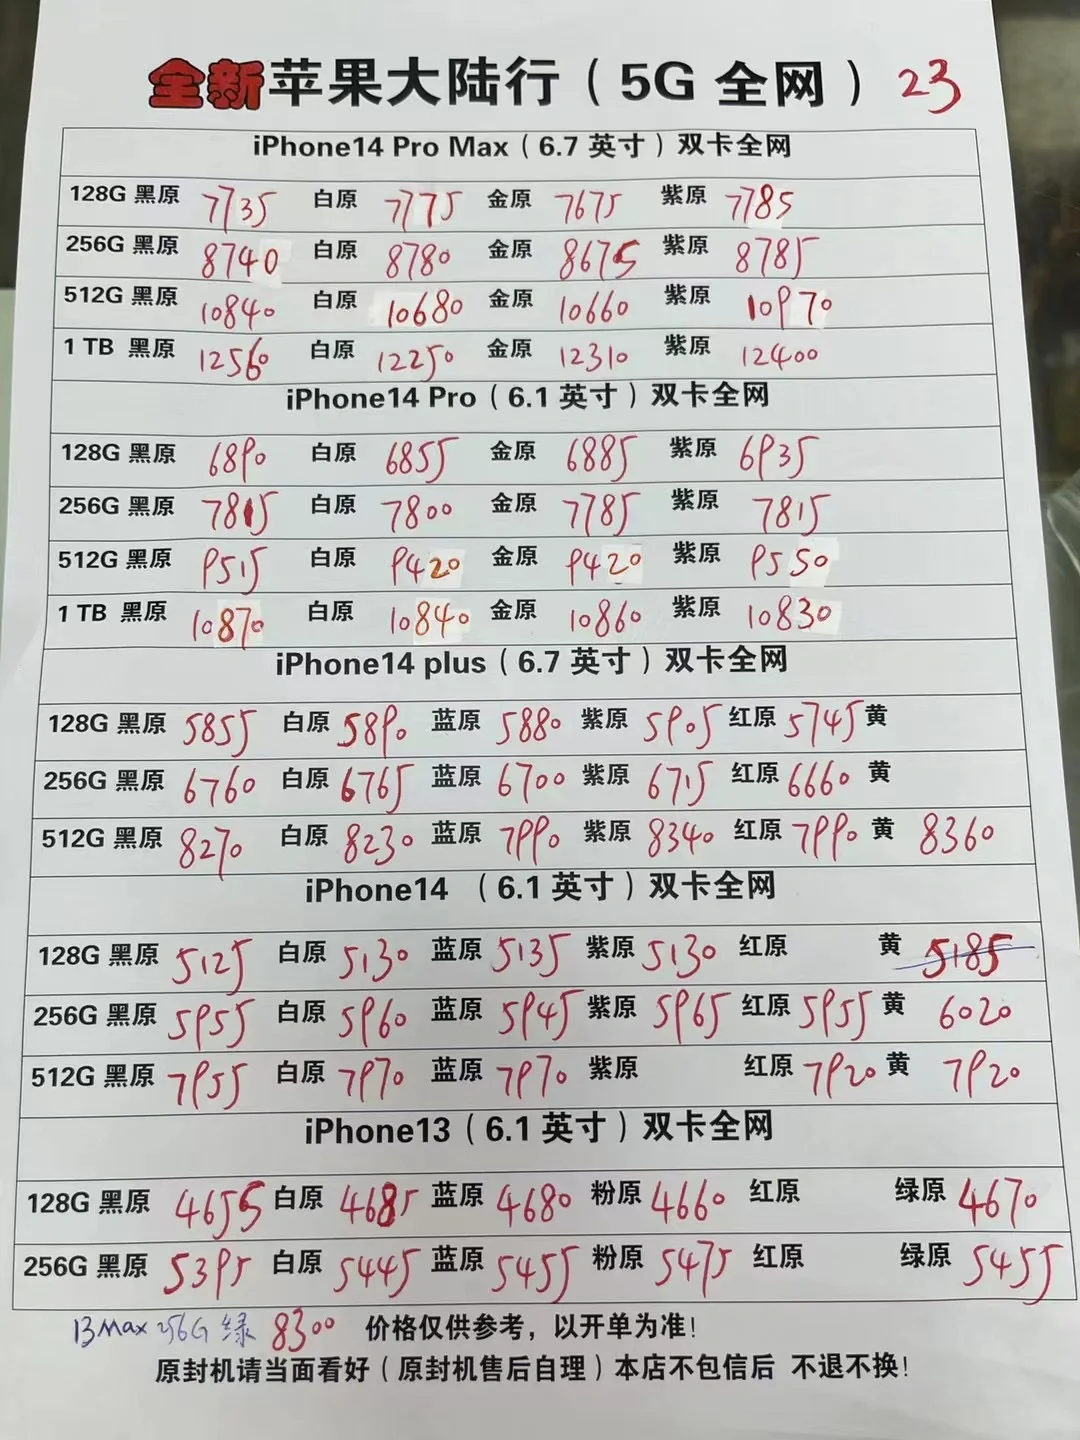 全新苹果大陆行（5G 全网） 23
iPhone14 Pro Max（6.7 英寸）双卡全网
128G 黑原 7735 白原 7775 金原 7675 紫原 7785
256G 黑原 8740 白原 8780 金原 8675 紫原 8785
512G 黑原 10840 白原 10680 金原 10660 紫原 10970
1 TB 黑原 12560 白原 12250 金原 12310 紫原 12400
iPhone14 Pro（6.1 英寸）双卡全网
128G 黑原 6890 白原 6855 金原 6885 紫原 6935
256G 黑原 7815 白原 7800 金原 7785 紫原 7815
512G 黑原 9515 白原 9420 金原 9420 紫原 9550
1 TB 黑原 10870 白原 10840 金原 10860 紫原 10830
iPhone14 plus（6.7 英寸）双卡全网
128G 黑原 5855 白原 5890 蓝原 5880 紫原 5905 红原 5745 黄
256G 黑原 6760 白原 6765 蓝原 6700 紫原 6715 红原 6660 黄
512G 黑原 8270 白原 8230 蓝原 7990 紫原 8340 红原 7990 黄 8360
iPhone14 （6.1 英寸）双卡全网
128G 黑原 5125 白原 5130 蓝原 5135 紫原 5130 红原 黄 5185
256G 黑原 5955 白原 5960 蓝原 5945 紫原 5965 红原 5955 黄 6020
512G 黑原 7955 白原 7970 蓝原 7970 紫原 红原 7920 黄 7920
iPhone13（6.1 英寸）双卡全网
128G 黑原 4655 白原 4685 蓝原 4680 粉原 4660 红原 绿原 4670
256G 黑原 5395 白原 5445 蓝原 5455 粉原 5475 红原 绿原 5455
13Max 256G 绿 8300 价格仅供参考，以开单为准！
原封机请当面看好（原封机售后自理）本店不包信后 不退不换！